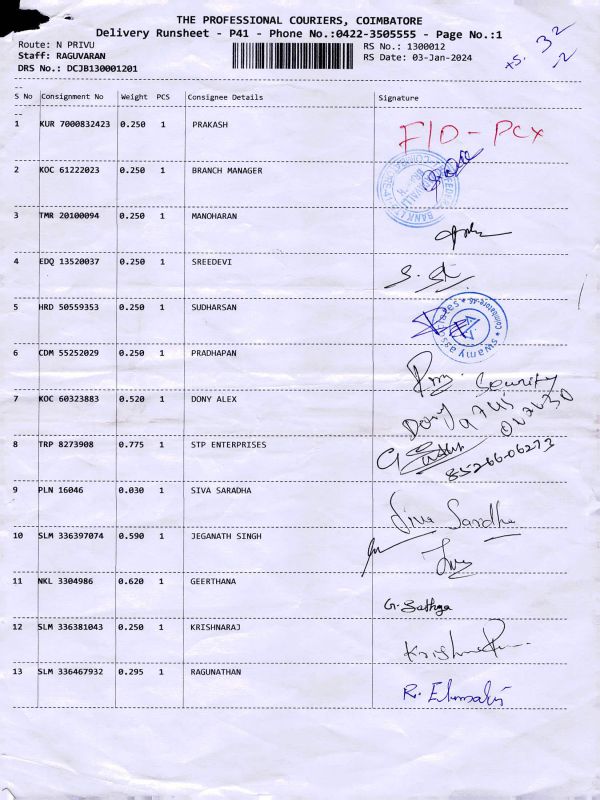 THE PROFESSIONAL COURIERS, COIMBATORE
Delivery Runsheet - P41 - Phone No.:0422-3505555 - Page No.:1
Route: N PRIVU
RS No.: 1300012
Staff: RAGUVARAN
RS Date: 03-Jan-2024
DRS No.: DCJB130001201
32
-2
--
S No Consignment No Weight PCS Consignee Details Signature
--
1 KUR 7000832423 0.250 1 PRAKASH
2 KOC 61222023 0.250 1 BRANCH MANAGER
3 TMR 20100094 0.250 1 MANOHARAN
4 EDQ 13520037 0.250 1 SREEDEVI
5 HRD 50559353 0.250 1 SUDHARSAN
swamy associates * Coimbatore-46 *
6 CDM 55252029 0.250 1 PRADHAPAN
7 KOC 60323883 0.520 1 DONY ALEX
8 TRP 8273908 0.775 1 STP ENTERPRISES
8526606273
9 PLN 16046 0.030 1 SIVA SARADHA
Siva Saradha
10 SLM 336397074 0.590 1 JEGANATH SINGH
11 NKL 3304986 0.620 1 GEERTHANA
G. Sathya
12 SLM 336381043 0.250 1 KRISHNARAJ
13 SLM 336467932 0.295 1 RAGUNATHAN